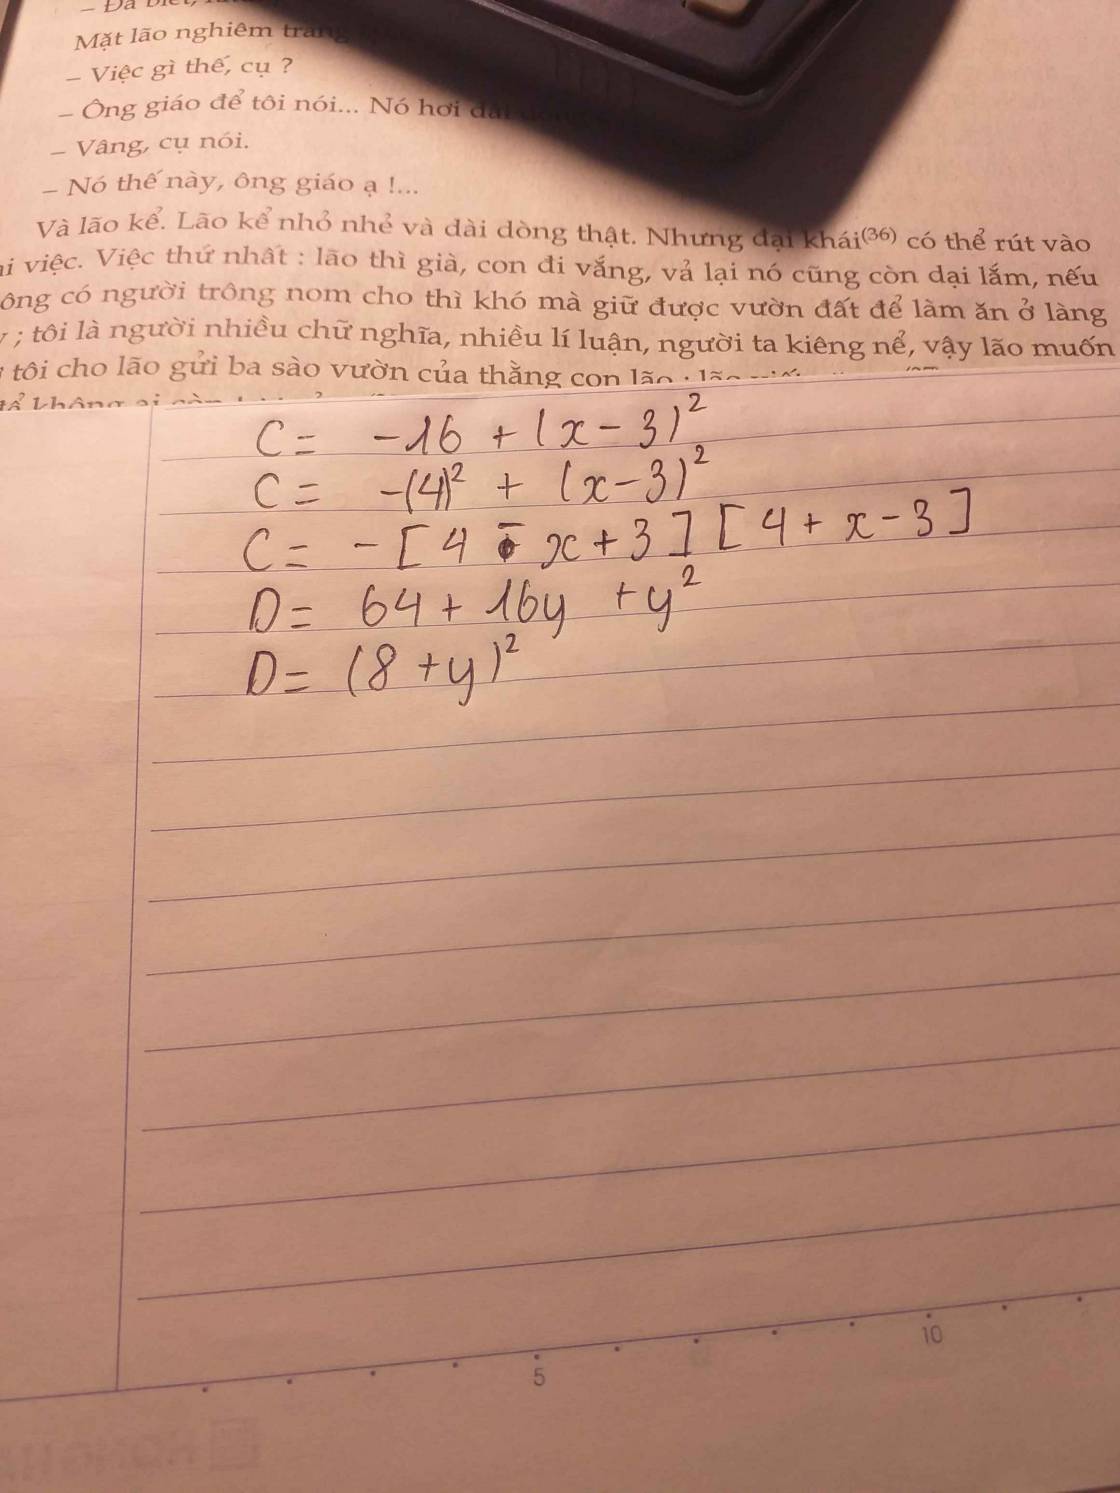 – Đã biết,
Mặt lão nghiêm trang
– Việc gì thế, cụ ?
– Ông giáo để tôi nói... Nó hơi dài dòng
– Vâng, cụ nói.
– Nó thế này, ông giáo ạ !...
Và lão kể. Lão kể nhỏ nhẻ và dài dòng thật. Nhưng đại khái(36) có thể rút vào
việc. Việc thứ nhất : lão thì già, con đi vắng, vả lại nó cũng còn dại lắm, nếu
ông có người trông nom cho thì khó mà giữ được vườn đất để làm ăn ở làng
; tôi là người nhiều chữ nghĩa, nhiều lí luận, người ta kiêng nể, vậy lão muốn
tôi cho lão gửi ba sào vườn của thằng con lão ; lão
để không ai còn
C = -16 + (x-3)²
C = -(4)² + (x-3)²
C = -[4 - x+3][4+x-3]
D = 64 + 16y + y²
D = (8+y)²
5 10